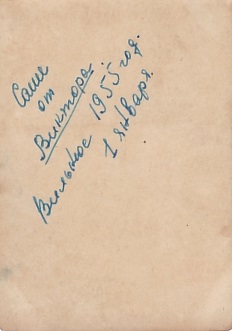 Саше
от
Виктора
Вильнюс 1955 год.
1 января.